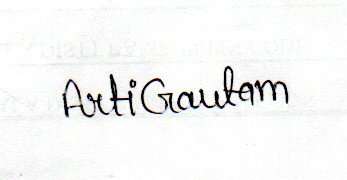 Arti Gautam